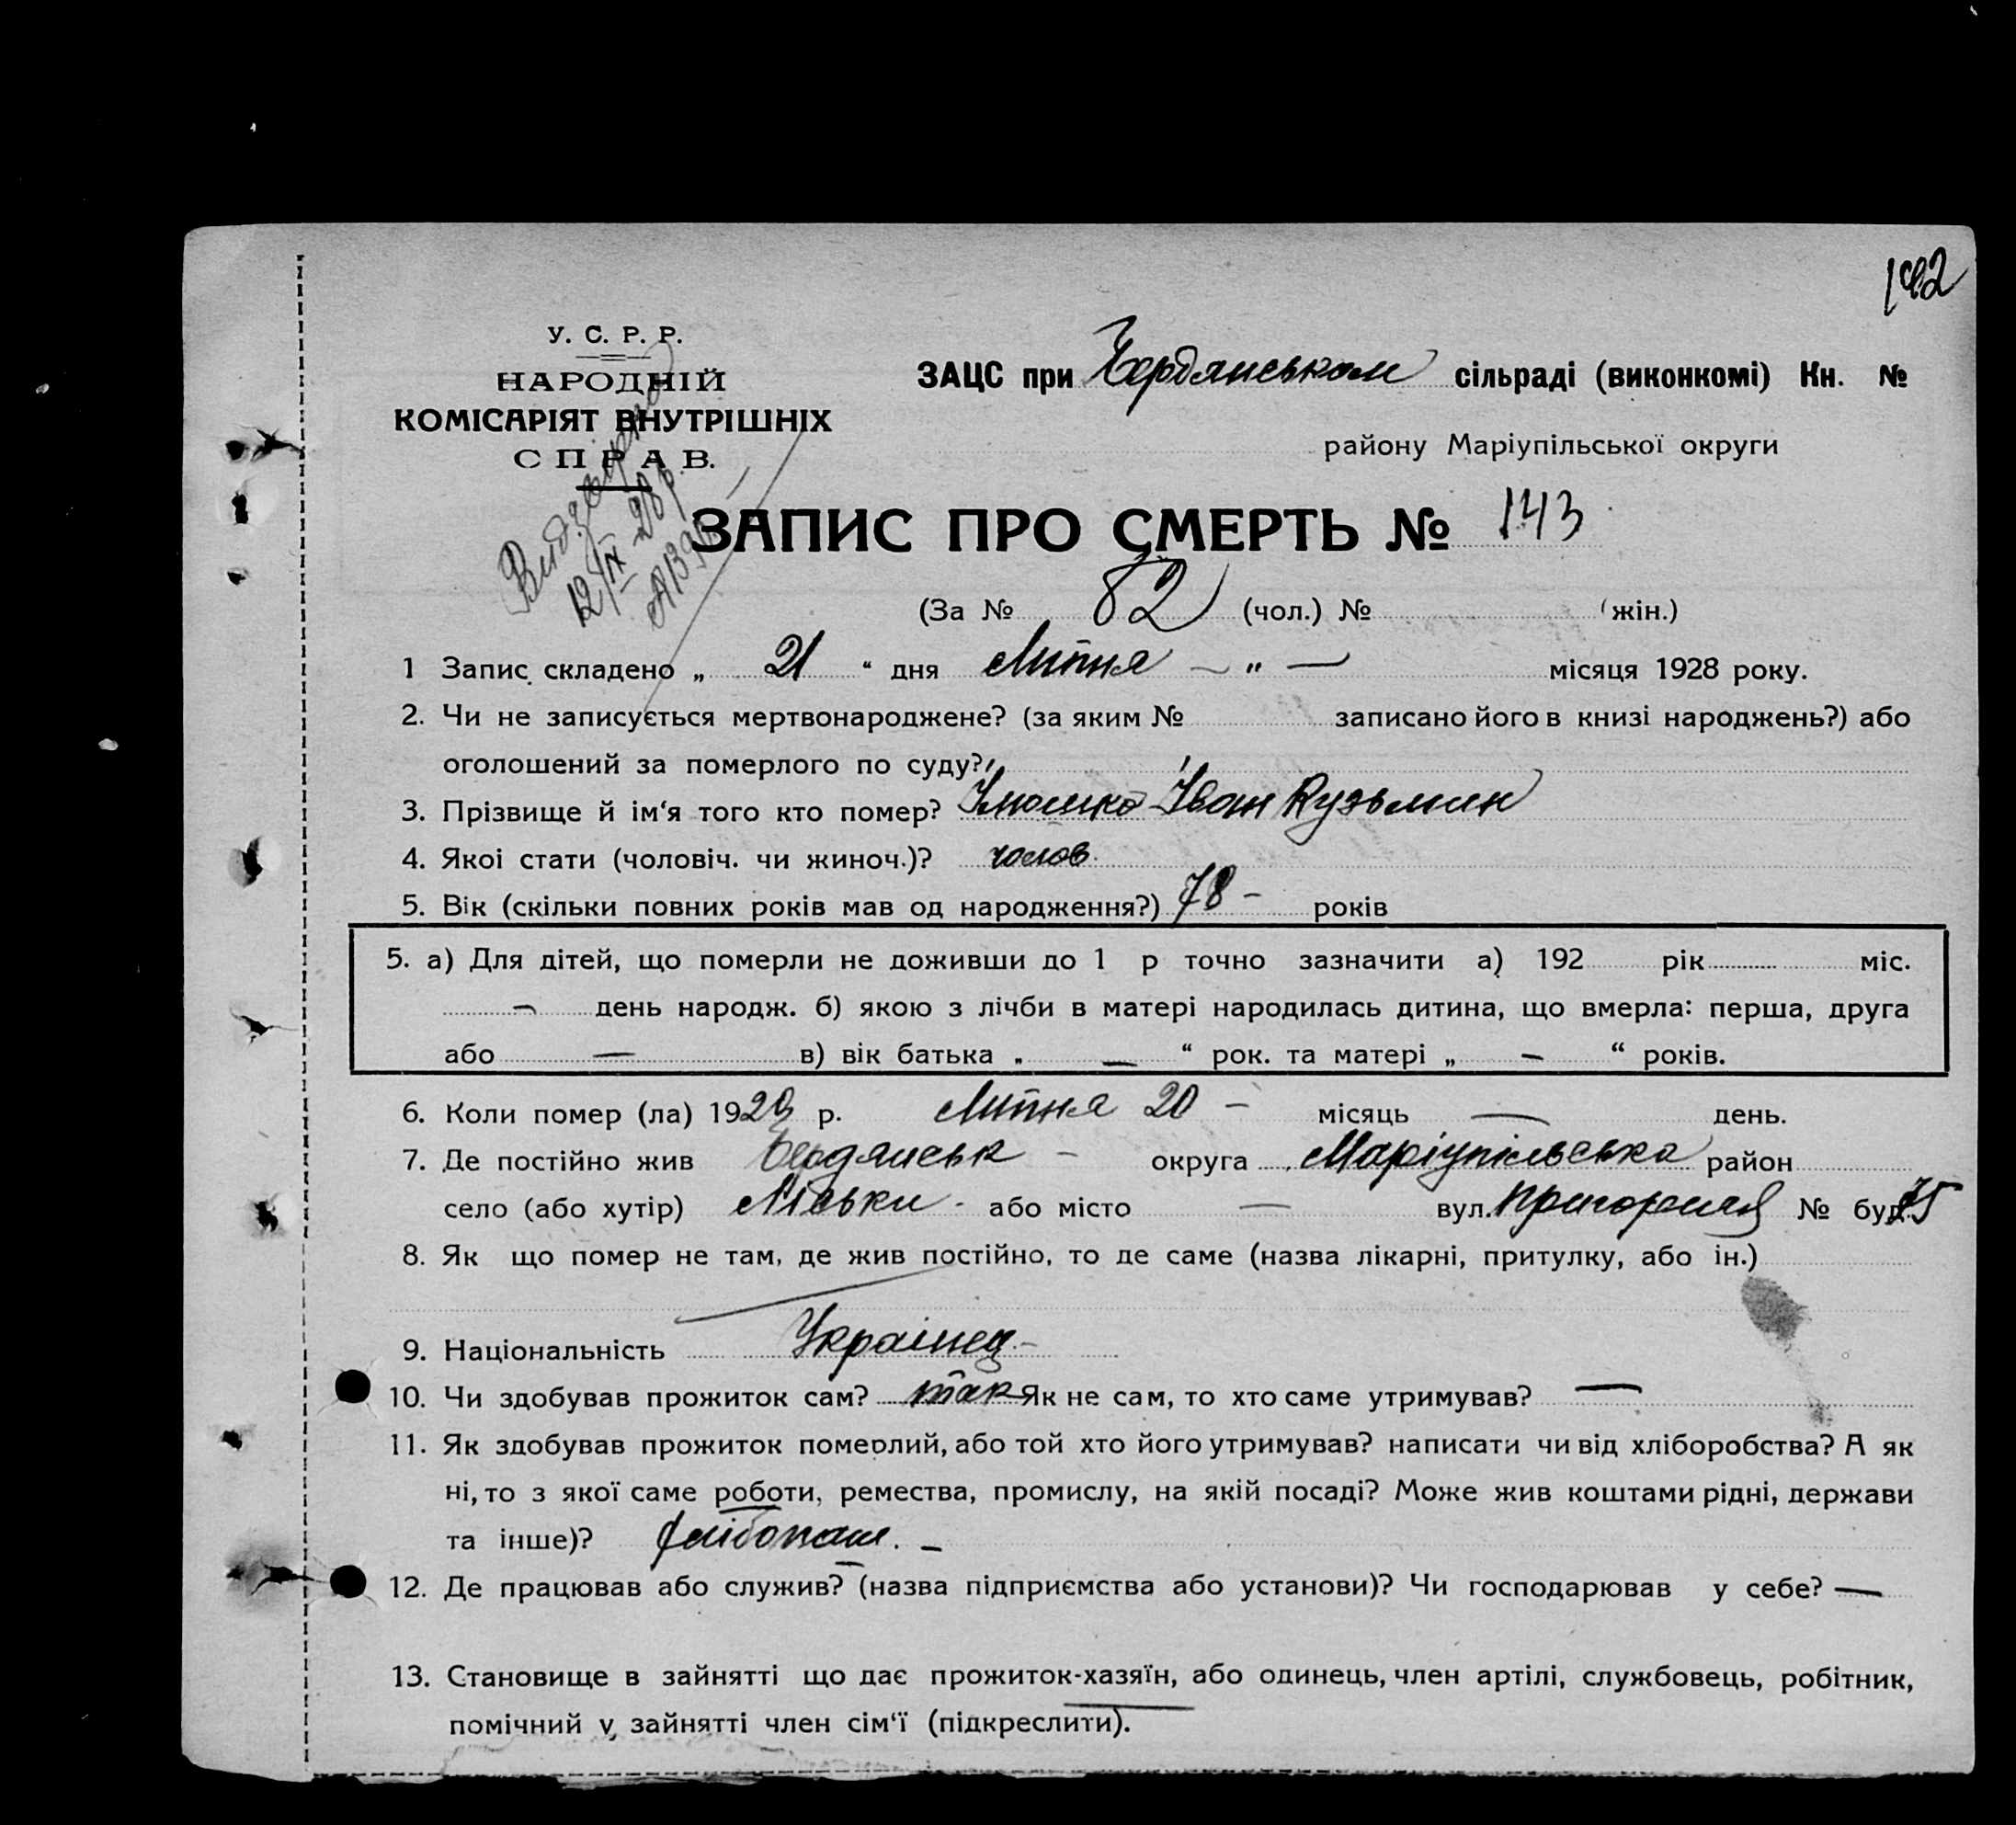 192
У. С. Р. Р.
НАРОДНІЙ
КОМІСАРІЯТ ВНУТРІШНІХ
СПРАВ.
ЗАЦС при Бердянськом сільраді (виконкомі) Кн. №
району Маріупільської округи
12/IX 28 р.
ЗАПИС ПРО СМЕРТЬ № 143
(За № 82 (чол.) № (жін.)
1 Запис складено „ 21 “ дня Липня — " — місяця 1928 року.
2. Чи не записується мертвонароджене? (за яким № записано його в книзі народжень?) або
оголошений за померлого по суду?
3. Прізвище й ім‘я того кто помер? Іван Кузьмин
4. Якоі стати (чоловіч. чи жиноч.)? чолов.
5. Вік (скільки повних років мав од народження?) 78 - років
5. а) Для дітей, що померли не доживши до 1 р точно зазначити а) 192 рік міс.
— день народж. б) якою з лічби в матері народилась дитина, що вмерла: перша, друга
або — в) вік батька „ — “ рок. та матері „ — “ років.
6. Коли помер (ла) 1928 р. Липня 20 - місяць — день.
7. Де постійно жив Бердянськ - округа Маріупільська район
село (або хутір) Ліськи - або місто — вул. Пригорная № буд. 75
8. Як що помер не там, де жив постійно, то де саме (назва лікарні, притулку, або ін.)
9. Національність Украінец -
10. Чи здобував прожиток сам? так Як не сам, то хто саме утримував? —
11. Як здобував прожиток померлий, або той хто його утримував? написати чи від хліборобства? А як
ні, то з якої саме роботи, ремества, промислу, на якій посаді? Може жив коштами рідні, держави
та інше)? хлібопаш. -
12. Де працював або служив? (назва підприємства або установи)? Чи господарював у себе? —
13. Становище в зайнятті що дає прожиток-хазяїн, або одинець, член артілі, службовець, робітник,
помічний у зайнятті член сім‘ї (підкреслити).